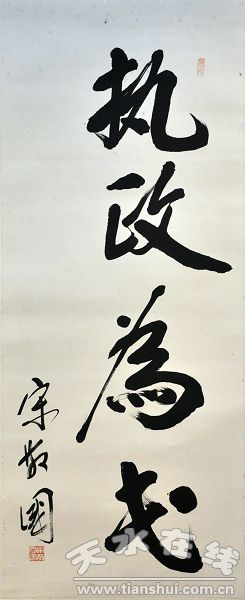 执政為民
宋敬國
天水在线
www.tianshui.com.cn